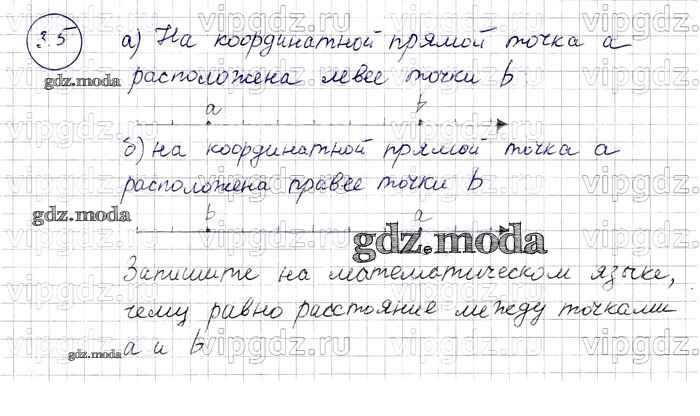 3.5 а) На координатной прямой точка a
gdz.moda расположена левее точки b
a b
б) на координатной прямой точка a
расположена правее точки b
gdz.moda
b a
gdz.moda
Запишите на математическом языке,
чему равно расстояние между точками
gdz.moda a и b
vipgdz.ru